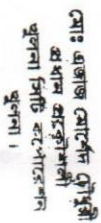 মোঃ এজাজ মোর্শেদ চৌধুরী
প্রধান প্রকৌশলী
খুলনা সিটি কর্পোরেশন
খুলনা।